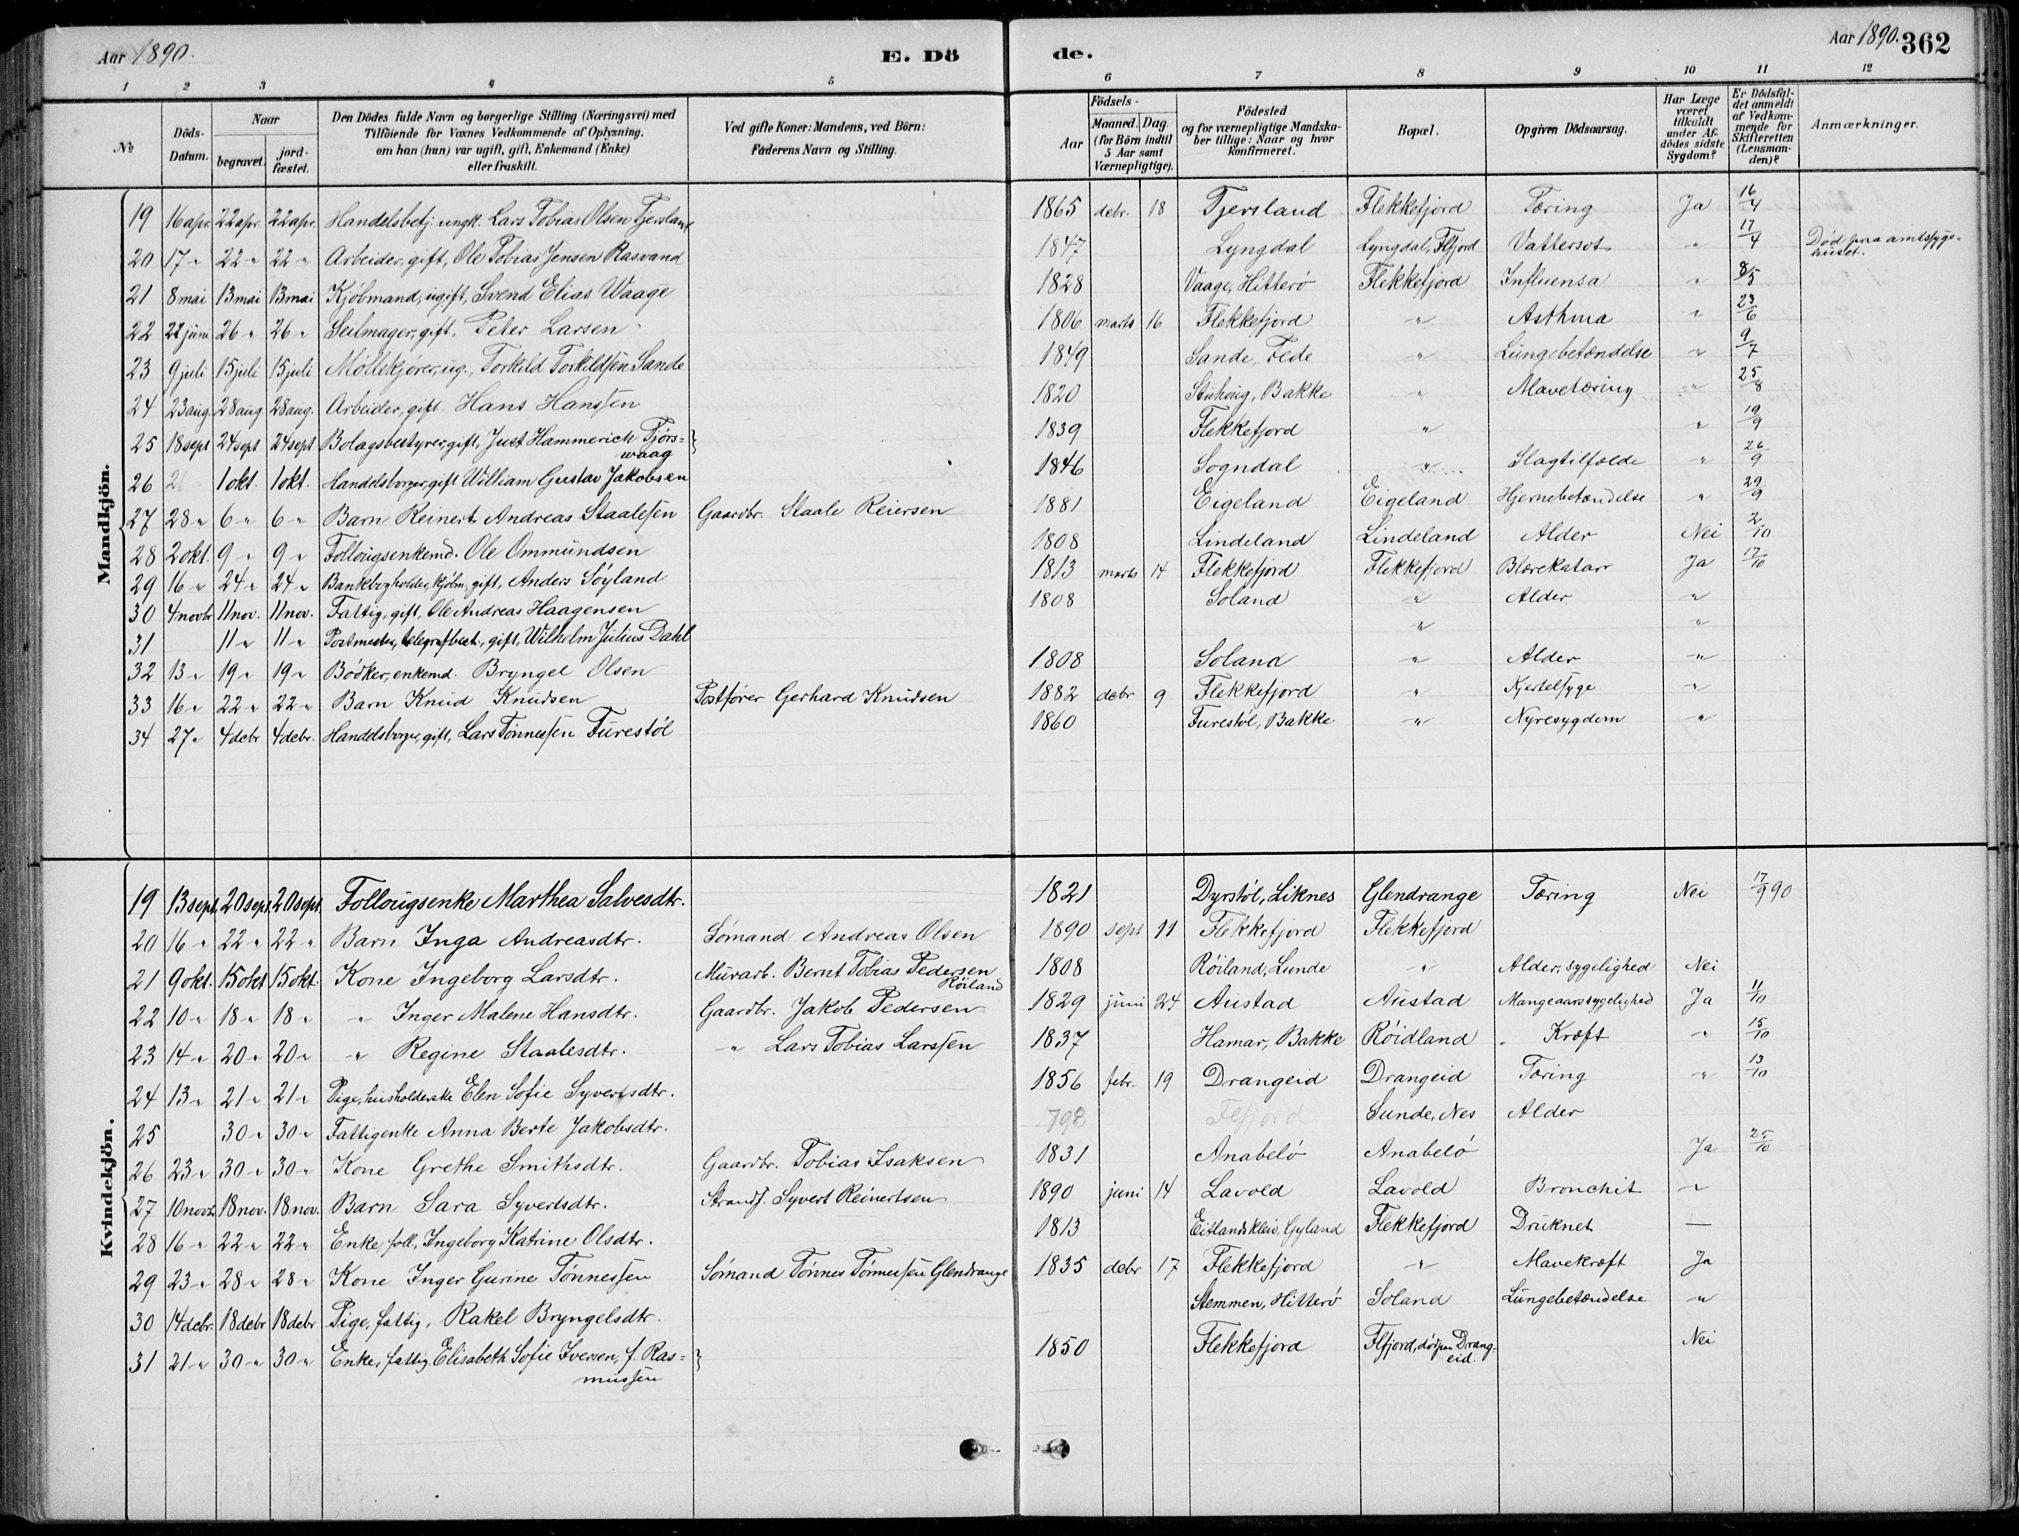 Aar 1890. E. Dö
de. Aar 1890. 362
1 2 3 4 5
6 7 8 9 10 11 12
No Döds-Datum. Naar begravet. jord-fæstet. Den Dödes fulde Navn og borgerlige Stilling (Næringsvei) med Tilföiende for Voxnes Vedkommende af Oplysning, om han (hun) var ugift, gift, Enkemand (Enke) eller fraskilt. Ved gifte Koner: Mandens, ved Börn: Faderens Navn og Stilling.
Födsels- Aar Maaned. Dag. (for Börn indtil 5 Aar samt Værnepligtige). Födested og for værnepligtige Mandskaber tillige: Naar og hvor Konfirmeret. Bopæl. Opgiven Dödsaarsag. Har Læge været tilkaldt under Afdödes sidste Sygdom? Er Dödsfaldet anmeldt af Vedkommende for Skifteretten (Lensmanden)? Anmærkninger.
Mandkjön.
19 16 apr. 22 apr. 22 apr. Handelsbetj. ungk. Lars Tobias Olsen Tjersland 1865 debr. 18 Tjersland Flekkefjord Tæring Ja 16/4
20 17 " 22 " 22 " Arbeider, gift, Ole Tobias Jensen Rasvand 1847 Lyngdal Lyngdal, Flfjord Vattersot " 17/4 Død paa amtssygehuset.
21 8 mai 13 mai 13 mai Kjöbmand, ugift, Svend Elias Waage 1828 Vaage, Hitterø Flekkefjord Influensa " 8/5
22 22 juni 26 " 26 " Seilmager, gift, Peter Larsen 1806 marts 16 Flekkefjord " Asthma " 23/6
23 9 juli 15 juli 15 juli Møllekjører, ug., Torkild Torkildsen Sande 1849 Sande, Fede " Lungebetændelse " 9/7
24 23 aug. 28 aug. 28 aug. Arbeider, gift Hans Hanssen 1820 Stuhoug, Bakke " Mavetæring " 25/8
25 18 sept 24 sept 24 sept Bolagsbestyrer, gift, Just Hammerich Tjørswaag 1839 Flekkefjord " " 19/9
26 2 1 okt. 1 okt. Handelsborger, gift William Gustav Jakobsen 1846 Sogndal " Slagtilfælde " 26/9
27 28 " 6 " 6 " Barn Reinert Andreas Staalesen Gaardbr. Staale Reiersen 1881 Eigeland Eigeland Hjernebetændelse " 29/9
28 2 okt. 9 " 9 " Follougsenkemd. Ole Ommundsen 1808 Lindeland Lindeland Alder Nei 2/10
29 16 " 24 " 24 " Bankbogholder, kjøbm., gift, Anders Söyland 1813 marts 14 Flekkefjord Flekkefjord Blærekatarr Ja 17/10
30 4 novbr 11 nov. 11 nov. Fattig, gift, Ole Andreas Haagensen 1808 Soland " Alder "
31 11 " 11 " Postmester, telegrafbest., gift, Wilhelm Julius Dahl " "
32 13 " 19 " 19 " Bödker, enkemd. Bryngel Olsen 1808 Soland " Alder "
33 16 " 22 " 22 " Barn Knud Knudsen Postfører Gerhard Knudsen 1882 debr 9 Flekkefjord " Kjertelsyge "
34 27 " 4 debr 4 debr. Handelsborger, gift, Lars Tønnessen Furestøl 1860 Furestøl, Bakke " Nyresygdom "
Kvindekjön.
19 13 sept. 20 sept. 20 sept. Follougsenke Marthea Salvesdtr. 1821 Dyrstøl, Liknes Glendrange Tæring Nei 17/9 90
20 16 " 22 " 22 " Barn Inga Andreasdtr. Sømand Andreas Olsen 1890 sept 11 Flekkefjord Flekkefjord
21 9 okt. 15 okt 15 okt. Kone Ingeborg Larsdtr. Murarb. Bernt Tobias Pedersen Røiland 1808 Røiland, Lunde " Alder, sygelighed Nei
22 10 " 18 " 18 " " Inger Malene Hansdtr. Gaardbr. Jakob Pedersen 1829 juni 24 Austad Austad Mangeaarssygelighed Ja 11/10
23 14 " 20 " 20 " " Regine Staalesdtr. " Lars Tobias Larssen 1837 Hamar, Bakke Røidland Kræft " 15/10
24 13 " 21 " 21 " Pige, husholderske Elen Sofie Syvertsdtr. 1856 febr. 19 Drangeid Drangeid Tæring " 13/10
25 30 " 30 " Fattigenke Anna Berte Jakobsdtr. 798 Flfjord Sunde, Nes Alder
26 23 " 30 " 30 " Kone Grethe Smithsdtr. Gaardbr. Tobias Isaksen 1831 Anabelø Anabelø Ja 25/10
27 10 novb. 18 nov. 18 nov. Barn Sara Syvertsdtr. Strands. Syvert Reinertsen 1890 juni 14 Lavold Lavold Bronchit "
28 16 " 22 " 22 " Enke foll., Ingeborg Katrine Olsdtr. 1813 Eitlandskleiv, Gyland Flekkefjord Druknet —
29 23 " 28 " 28 " Kone Inger Gurine Tønnessen Sømand Tönnes Tönnessen Glendrange 1835 debr 17 Flekkefjord " Mavekræft Ja
30 14 debr. 18 debr 18 debr Pige, fattig, Rakel Bryngelsdtr. Stemmen, Hitterø Soland Lungebetændelse "
31 21 " 30 " 30 " Enke, fattig, Elisabeth Sofie Iversen, f. Rasmussen 1850 Flekkefjord Flfjord, død paa Drangeid. Nei